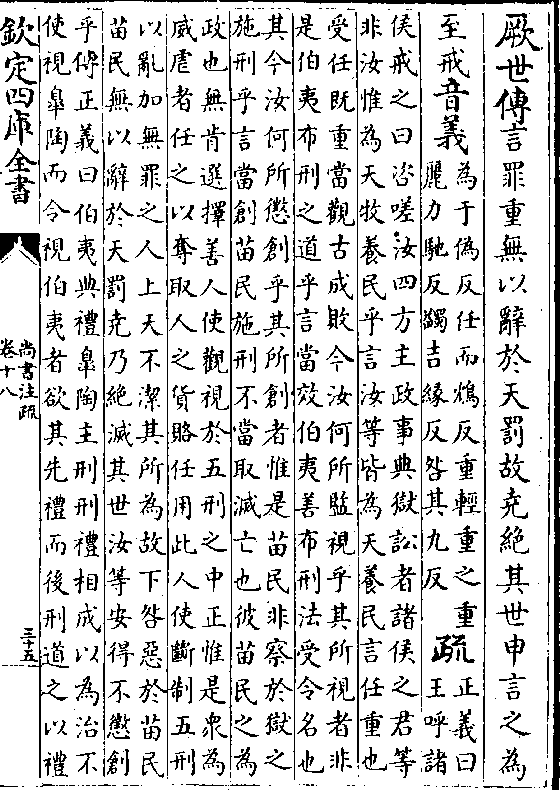 厥世傳言罪重無以辭於天罰故堯絶其世申言之為
至戒音義
為于偽反任而鴆反重輕重之重
麗力馳反蠲吉緣反咎其九反
疏
正義曰
王呼諸
侯戒之曰咨嗟汝四方主政事典獄訟者諸侯之君等
非汝惟為天牧養民乎言汝等皆為天養民言任重也
受任既重當觀古成敗今汝何所監視乎其所視者非
是伯夷布刑之道乎言當效伯夷善布刑法受令名也
其今汝何所懲創乎其所創者惟是苗民非察於獄之
施刑乎言當創苗民施刑不當取滅亡也彼苗民之為
政也無肯選擇善人使觀視於五刑之中正惟是衆為
威虐者任之以奪取人之貨賂任用此人使斷制五刑
以亂加無罪之人上天不潔其所為故下咎惡於苗民
苗民無以辭於天罰堯乃絶滅其世汝等安得不懲創
乎傳正義曰伯夷典禮皐陶主刑刑禮相成以為治不
使視皐陶而令視伯夷者欲其先禮而後刑道之以禮
欽定四庫全書
尚書注疏
卷十八
三十五